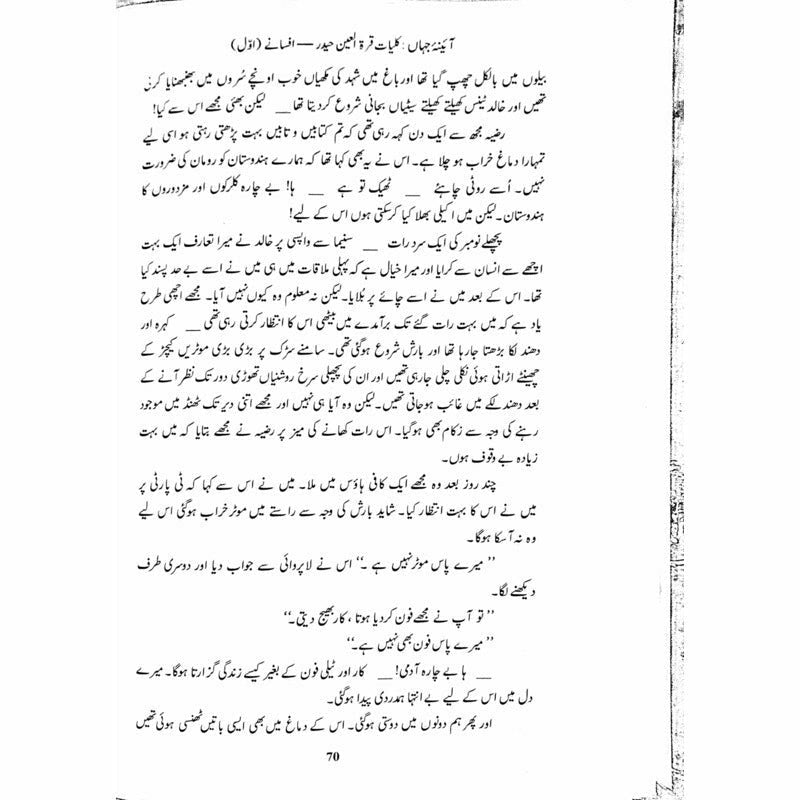 آئینۂ جہاں : کلیات قرۃ العین حیدر — افسانے (اوّل)
بیلوں میں بالکل چھپ گیا تھا اور باغ میں شہد کی مکھیاں خوب اونچے سُروں میں بھنبھنایا کرتی
تھیں اور خالد ٹینس کھیلتے کھیلتے سیٹیاں بجانی شروع کردیتا تھا __ لیکن بھئی مجھے اس سے کیا!
رضیہ مجھ سے ایک دن کہہ رہی تھی کہ تم کتابیں وتابیں بہت پڑھتی رہتی ہو اسی لیے
تمہارا دماغ خراب ہو چلا ہے۔ اس نے یہ بھی کہا تھا کہ ہمارے ہندوستان کو رومان کی ضرورت
نہیں۔ اُسے روٹی چاہئے __ ٹھیک تو ہے __ ہا! بے چارہ کلرکوں اور مزدوروں کا
ہندوستان۔ لیکن میں اکیلی بھلا کیا کرسکتی ہوں اس کے لیے!
پچھلے نومبر کی ایک سرد رات __ سنیما سے واپسی پر خالد نے میرا تعارف ایک بہت
اچھے سے انسان سے کرایا اور میرا خیال ہے کہ پہلی ملاقات میں ہی میں نے اسے بے حد پسند کیا
تھا۔ اس کے بعد میں نے اسے چائے پر بُلایا۔ لیکن نہ معلوم وہ کیوں نہیں آیا۔ مجھے اچھی طرح
یاد ہے کہ میں بہت رات گئے تک برآمدے میں بیٹھی اس کا انتظار کرتی رہی تھی __ کہرہ اور
دھند لکا بڑھتا جارہا تھا اور بارش شروع ہوگئی تھی۔ سامنے سڑک پر بڑی بڑی موٹریں کیچڑ کے
چھینٹے اڑاتی ہوئی نکلی چلی جارہی تھیں اور ان کی پچھلی سرخ روشنیاں تھوڑی دور تک نظر آنے کے
بعد دھند لکے میں غائب ہوجاتی تھیں۔ لیکن وہ آیا ہی نہیں اور مجھے اتنی دیر تک ٹھنڈ میں موجود
رہنے کی وجہ سے زکام بھی ہوگیا۔ اس رات کھانے کی میز پر رضیہ نے مجھے بتایا کہ میں بہت
زیادہ بے وقوف ہوں۔
چند روز بعد وہ مجھے ایک کافی ہاؤس میں ملا۔ میں نے اس سے کہا کہ ٹی پارٹی پر
میں نے اس کا بہت انتظار کیا۔ شاید بارش کی وجہ سے راستے میں موٹر خراب ہوگئی اس لیے
وہ نہ آسکا ہوگا۔
’’میرے پاس موٹر نہیں ہے۔‘‘ اس نے لاپروائی سے جواب دیا اور دوسری طرف
دیکھنے لگا۔
’’تو آپ نے مجھے فون کردیا ہوتا، کار بھیج دیتی۔‘‘
’’میرے پاس فون بھی نہیں ہے۔‘‘
__ ہا بے چارہ آدمی! __ کار اور ٹیلی فون کے بغیر کیسے زندگی گزارتا ہوگا۔ میرے
دل میں اس کے لیے بے انتہا ہمدردی پیدا ہوگئی۔
اور پھر ہم دونوں میں دوستی ہوگئی۔ اس کے دماغ میں بھی ایسی باتیں ٹھنسی ہوئی تھیں
70